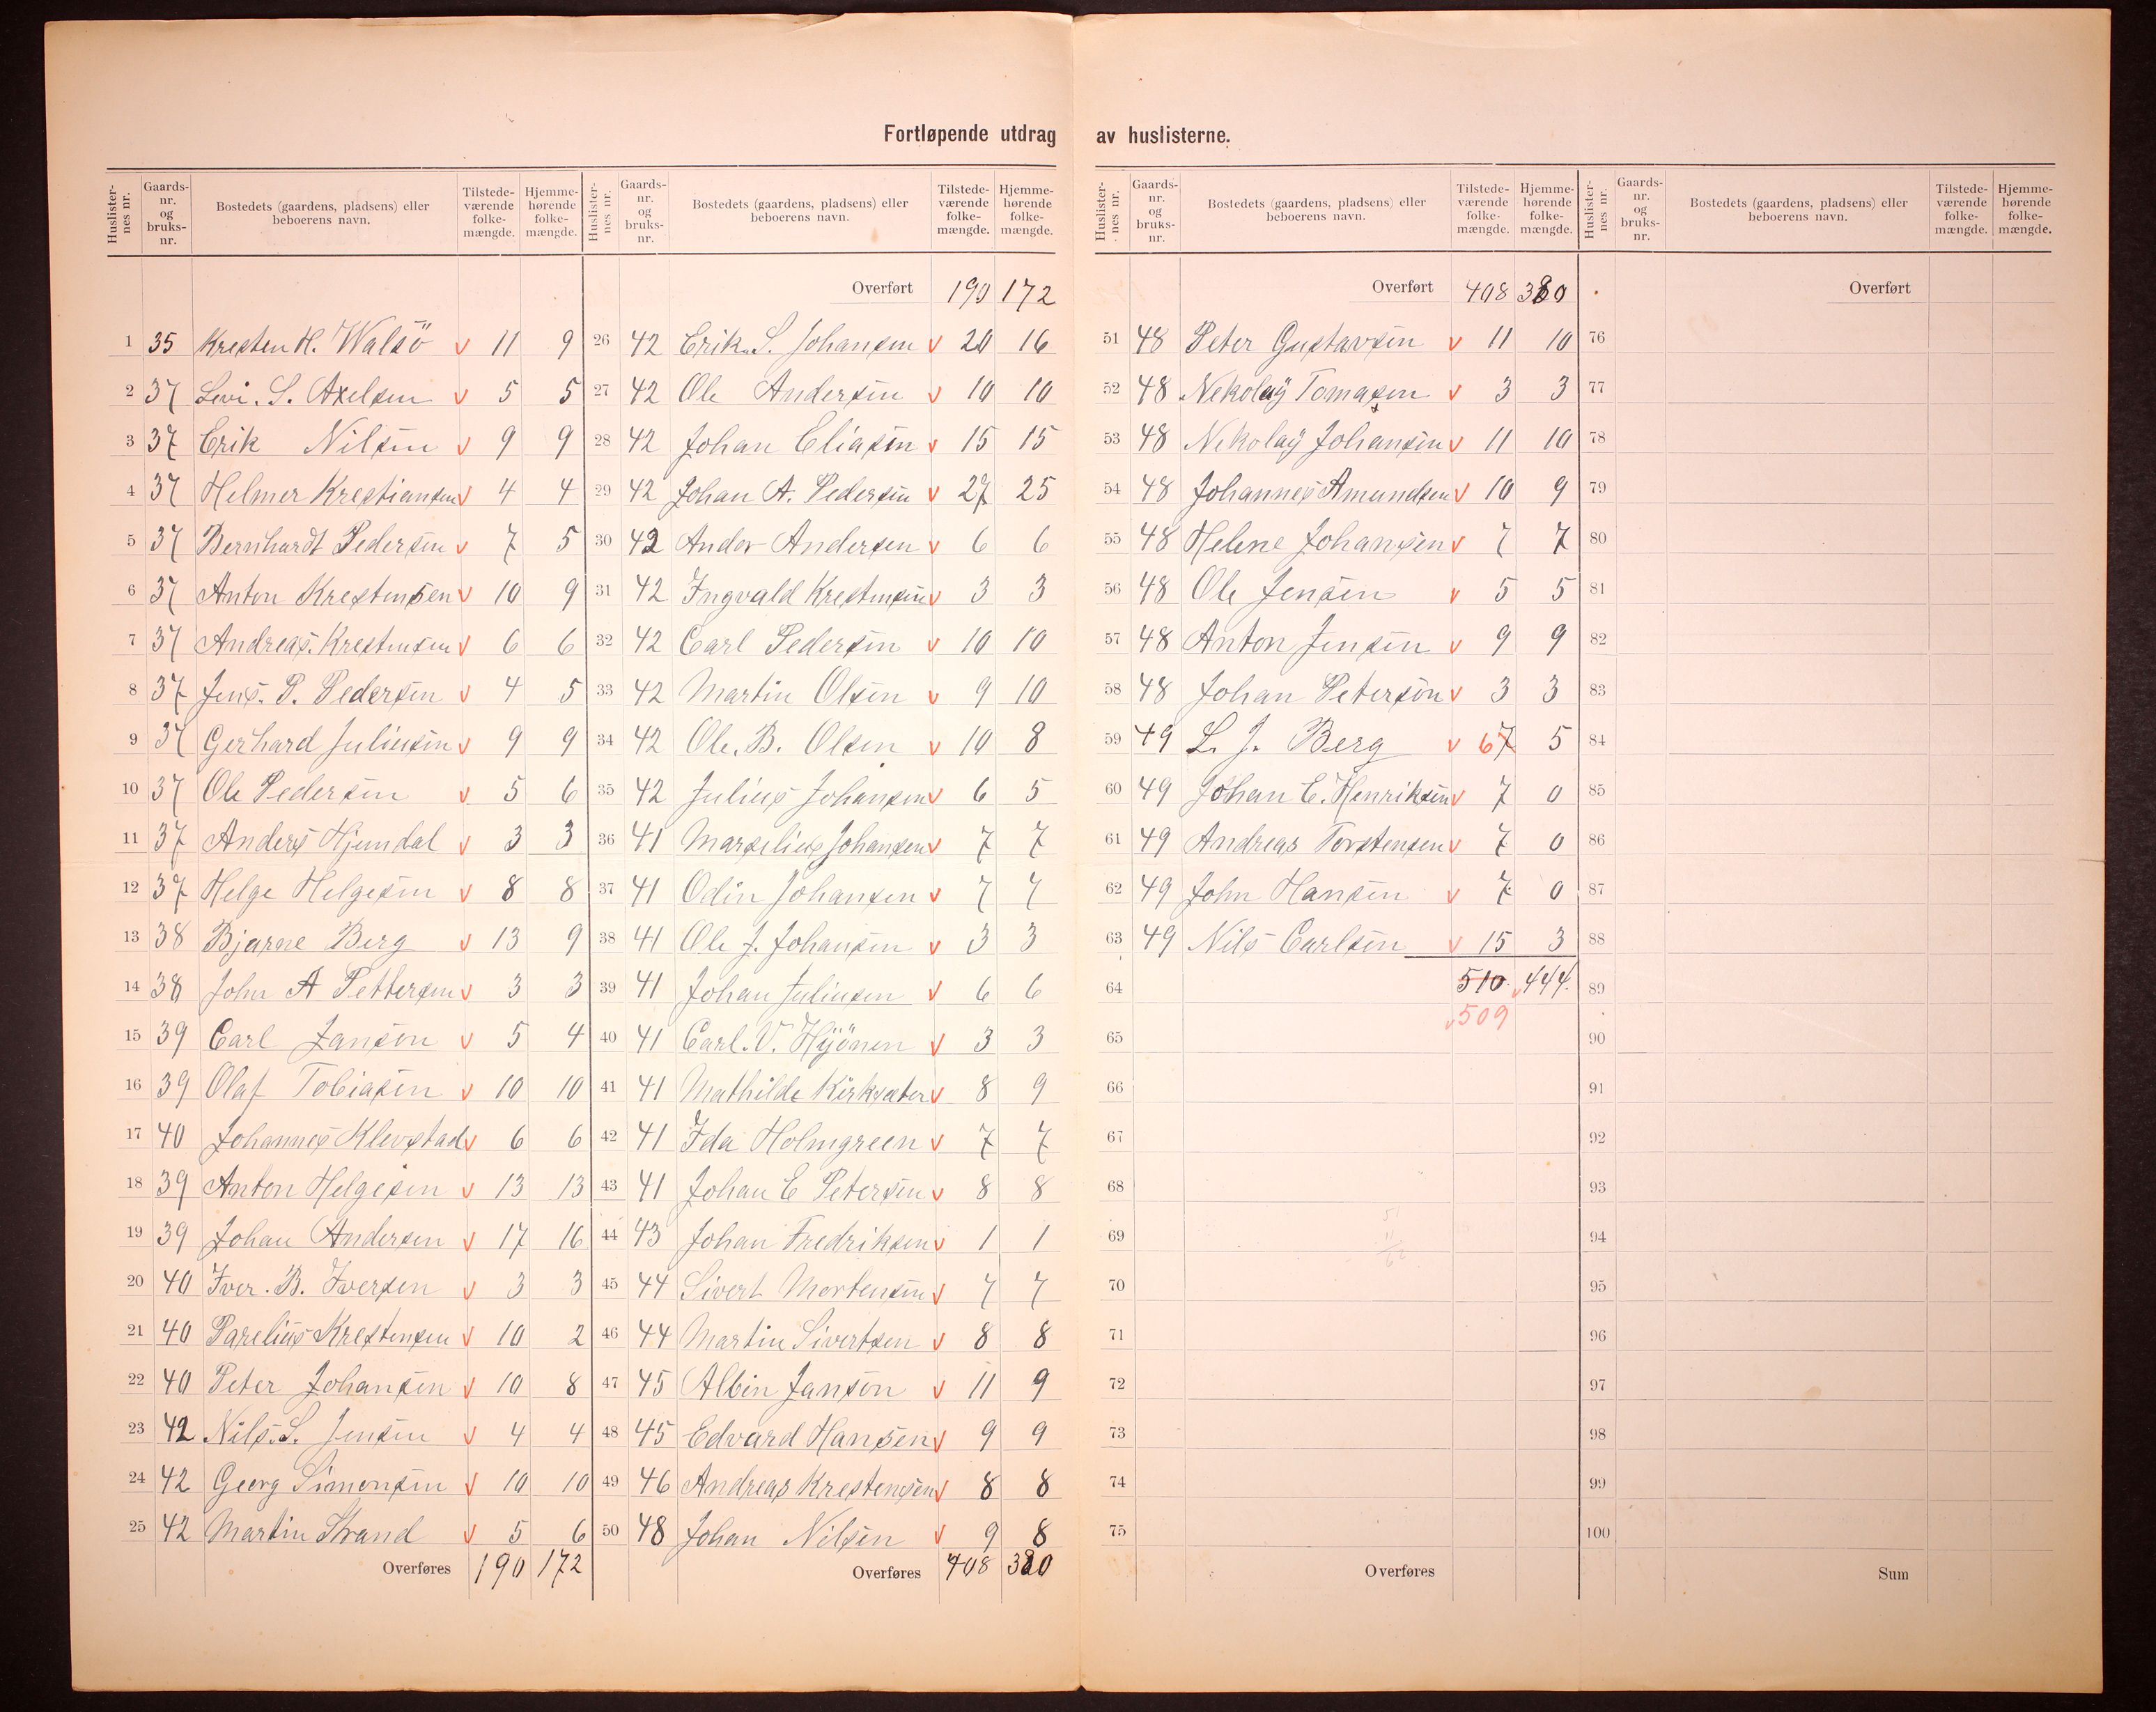 Fortløpende utdrag av huslisterne.
Huslister-nes nr. Gaards-nr. og bruks-nr. Bostedets (gaardens, pladsens) eller beboerens navn. Tilstede-værende folke-mængde. Hjemme-hørende folke-mængde.
1 35 Kresten H. Walsö v 11 9
2 37 Levi. S. Axelsen v 5 5
3 37 Erik Nilsen v 9 9
4 37 Helmer Krestiansen v 4 4
5 37 Bernhardt Pedersen v 7 5
6 37 Anton Krestensen v 10 9
7 37 Andreas. Krestensen v 6 6
8 37 Jens. P. Pedersen v 4 5
9 37 Gerhard Juliusen v 9 9
10 37 Ole Pedersen v 5 6
11 37 Anders Hjemdal v 3 3
12 37 Helge Helgesen v 8 8
13 38 Bjarne Berg v 13 9
14 38 John A Pettersen v 3 3
15 39 Carl Jansen v 5 4
16 39 Olaf Tobiasen v 10 10
17 40 Johannes Klevstad v 6 6
18 39 Anton Helgesen v 13 13
19 39 Johan Andersen v 17 16
20 40 Iver. B. Iversen v 3 3
21 40 Parelius Krestensen v 10 2
22 40 Peter Johansen v 10 8
23 42 Nils. S. Jensen v 4 4
24 42 Georg Simonsen v 10 10
25 42 Martin Strand v 5 6
Overføres 190 172
Huslister-nes nr. Gaards-nr. og bruks-nr. Bostedets (gaardens, pladsens) eller beboerens navn. Tilstede-værende folke-mængde. Hjemme-hørende folke-mængde.
Overført 190 172
26 42 Erik. S. Johansen v 20 16
27 42 Ole Andersen v 10 10
28 42 Johan Eliasen v 15 15
29 42 Johan A. Pedersen v 27 25
30 42 Andor Andersen v 6 6
31 42 Ingvald Krestensen v 3 3
32 42 Carl Pedersen v 10 10
33 42 Martin Olsen v 9 10
34 42 Ole. B. Olsen v 10 8
35 42 Julius Johansen v 6 5
36 41 Marselius Johansen v 7 7
37 41 Odin Johansen v 7 7
38 41 Ole J. Johansen v 3 3
39 41 Johan Juliusen v 6 6
40 41 Carl. V. Hÿönen v 3 3
41 41 Mathilde Kirksæter v 8 9
42 41 Ida Holmgreen v 7 7
43 41 Johan E Petersen v 8 8
44 43 Johan Fredriksen v 1 1
45 44 Sivert Mortensen v 7 7
46 44 Martin Sivertsen v 8 8
47 45 Albin Janson v 11 9
48 45 Edvard Hansen v 9 9
49 46 Andreas Krestensen v 8 8
50 48 Johan Nilsen v 9 8
Overføres 408 380
Huslister-nes nr. Gaards-nr. og bruks-nr. Bostedets (gaardens, pladsens) eller beboerens navn. Tilstede-værende folke-mængde. Hjemme-hørende folke-mængde.
Overført 408 380
51 48 Peter Gustavsen v 11 10
52 48 Nekolaÿ Tomasen v 3 3
53 48 Nekolaÿ Johansen v 11 10
54 48 Johannes Amundsen v 10 9
55 48 Helene Johansen v 7 7
56 48 Ole Jensen v 5 5
57 48 Anton Jensen v 9 9
58 48 Johan Peterson v 3 3
59 49 L. J. Berg v 6 7 5
60 49 Johan E. Henriksen v 7 0
61 49 Andreas Torstensen v 7 0
62 49 John Hansen v 7 0
63 49 Nils Carlsen v 15 3
64 510. v 444.
65 v 509
66
67
68
69
70
71
72
73
74
75
Overføres
Huslister-nes nr. Gaards-nr. og bruks-nr. Bostedets (gaardens, pladsens) eller beboerens navn. Tilstede-værende folke-mængde. Hjemme-hørende folke-mængde.
Overført
76
77
78
79
80
81
82
83
84
85
86
87
88
89
90
91
92
93
94
95
96
97
98
99
100
Sum